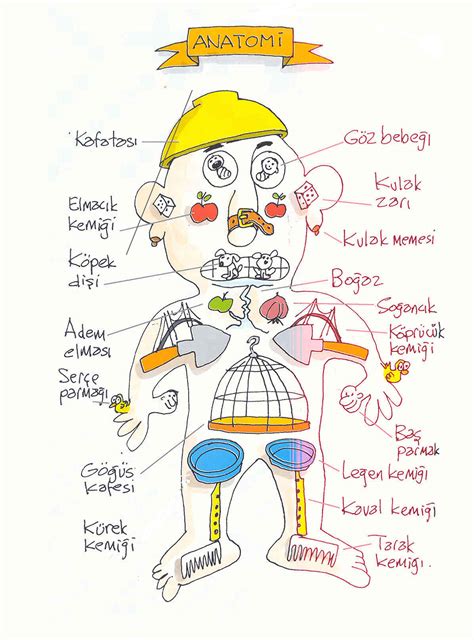 ANATOMİ
Kafatası
Göz bebeği
Elmacık
kemiği
Kulak
zarı
Kulak memesi
Köpek
dişi
Boğaz
Adem
elması
Soğancık
Köprücük
kemiği
Serçe
parmağı
Baş
parmak
Göğüs
kafesi
Leğen kemiği
Kaval kemiği
Kürek
kemiği
Tarak
kemiği.